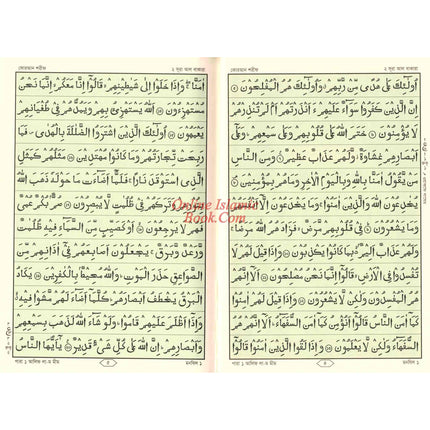 কোরআন শরীফ
২ সূরা আল বাকারা
أُولٰٓئِكَ عَلٰى هُدًى مِّنْ رَّبِّهِمْ وَاُولٰٓئِكَ هُمُ الْمُفْلِحُوْنَ
اِنَّ الَّذِيْنَ كَفَرُوْا سَوَآءٌ عَلَيْهِمْ ءَاَنْذَرْتَهُمْ اَمْ لَمْ تُنْذِرْهُمْ
لَا يُؤْمِنُوْنَ خَتَمَ اللّٰهُ عَلٰى قُلُوْبِهِمْ وَعَلٰى سَمْعِهِمْ وَعَلٰٓى
اَبْصَارِهِمْ غِشَاوَةٌ وَّلَهُمْ عَذَابٌ عَظِيْمٌ وَمِنَ النَّاسِ
مَنْ يَّقُوْلُ اٰمَنَّا بِاللّٰهِ وَبِالْيَوْمِ الْاٰخِرِ وَمَا هُمْ بِمُؤْمِنِيْنَ
يُخٰدِعُوْنَ اللّٰهَ وَالَّذِيْنَ اٰمَنُوْا وَمَا يَخْدَعُوْنَ اِلَّآ
اَنْفُسَهُمْ وَمَا يَشْعُرُوْنَ فِيْ قُلُوْبِهِمْ مَّرَضٌ فَزَادَهُمُ اللّٰهُ مَرَضًا
وَلَهُمْ عَذَابٌ اَلِيْمٌ بِمَا كَانُوْا يَكْذِبُوْنَ وَاِذَا قِيْلَ لَهُمْ لَا
تُفْسِدُوْا فِي الْاَرْضِ قَالُوْٓا اِنَّمَا نَحْنُ مُصْلِحُوْنَ اَلَآ اِنَّهُمْ
هُمُ الْمُفْسِدُوْنَ وَلٰكِنْ لَّا يَشْعُرُوْنَ وَاِذَا قِيْلَ لَهُمْ
اٰمِنُوْا كَمَآ اٰمَنَ النَّاسُ قَالُوْٓا اَنُؤْمِنُ كَمَآ اٰمَنَ السُّفَهَآءُ اَلَآ اِنَّهُمْ هُمُ
السُّفَهَآءُ وَلٰكِنْ لَّا يَعْلَمُوْنَ وَاِذَا لَقُوا الَّذِيْنَ اٰمَنُوْا قَالُوْٓا
পারা ১ আলিফ লা-ম মীম
মনযিল ১
কোরআন শরীফ
২ সূরা আল বাকারা
اٰمَنَّا وَاِذَا خَلَوْا اِلٰى شَيٰطِيْنِهِمْ قَالُوْٓا اِنَّا مَعَكُمْ اِنَّمَا نَحْنُ
مُسْتَهْزِءُوْنَ اَللّٰهُ يَسْتَهْزِئُ بِهِمْ وَيَمُدُّهُمْ فِيْ طُغْيَانِهِمْ
يَعْمَهُوْنَ اُولٰٓئِكَ الَّذِيْنَ اشْتَرَوُا الضَّلٰلَةَ بِالْهُدٰى فَمَا
رَبِحَتْ تِّجَارَتُهُمْ وَمَا كَانُوْا مُهْتَدِيْنَ مَثَلُهُمْ كَمَثَلِ
الَّذِي اسْتَوْقَدَ نَارًا فَلَمَّآ اَضَآءَتْ مَا حَوْلَهٗ ذَهَبَ اللّٰهُ
بِنُوْرِهِمْ وَتَرَكَهُمْ فِيْ ظُلُمٰتٍ لَّا يُبْصِرُوْنَ صُمٌّۢ بُكْمٌ عُمْيٌ
فَهُمْ لَا يَرْجِعُوْنَ اَوْ كَصَيِّبٍ مِّنَ السَّمَآءِ فِيْهِ ظُلُمٰتٌ
وَّرَعْدٌ وَّبَرْقٌ يَجْعَلُوْنَ اَصَابِعَهُمْ فِيْٓ اٰذَانِهِمْ مِّنَ
الصَّوَاعِقِ حَذَرَ الْمَوْتِ وَاللّٰهُ مُحِيْطٌۢ بِالْكٰفِرِيْنَ يَكَادُ
الْبَرْقُ يَخْطَفُ اَبْصَارَهُمْ كُلَّمَآ اَضَآءَ لَهُمْ مَّشَوْا فِيْهِ
وَاِذَآ اَظْلَمَ عَلَيْهِمْ قَامُوْا وَلَوْ شَآءَ اللّٰهُ لَذَهَبَ بِسَمْعِهِمْ
وَاَبْصَارِهِمْ اِنَّ اللّٰهَ عَلٰى كُلِّ شَيْءٍ قَدِيْرٌ يٰٓاَيُّهَا النَّاسُ
পারা ১ আলিফ লা-ম মীম
৫
মনযিল ১
Online Islamic
Book.Com